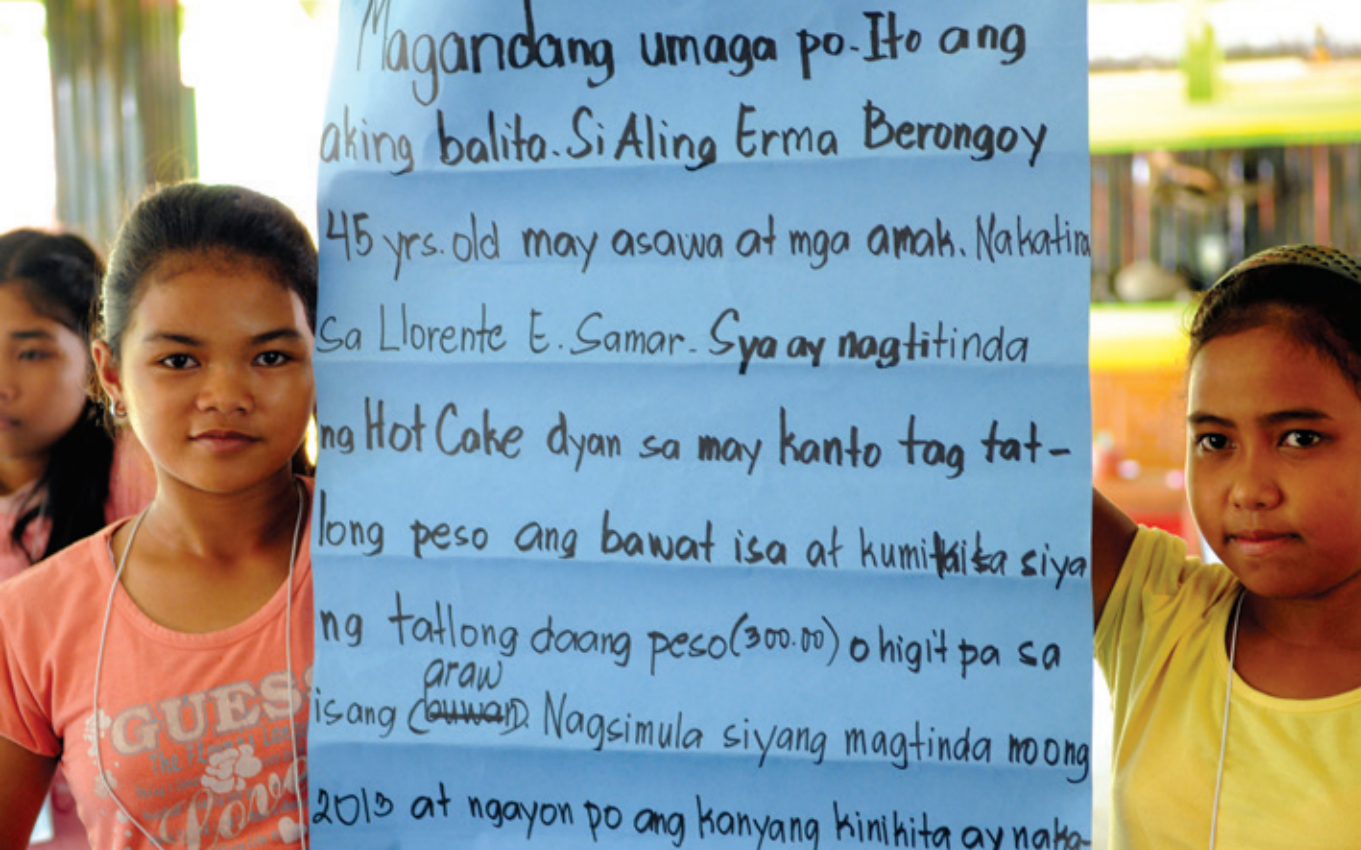 Magandang umaga po. Ito ang
aking balita. Si Aling Erma Berongoy
45 yrs. old may asawa at mga anak. Nakatira
sa Llorente E. Samar. Sya ay nagtitinda
ng Hot Cake dyan sa may kanto tag tat-
long peso ang bawat isa at kumikita siya
ng tatlong daang peso (300.00) o higit pa sa
araw
isang (buwan). Nagsimula siyang magtinda noong
2013 at ngayon po ang kanyang kinikita ay naka-
GUESS
Love